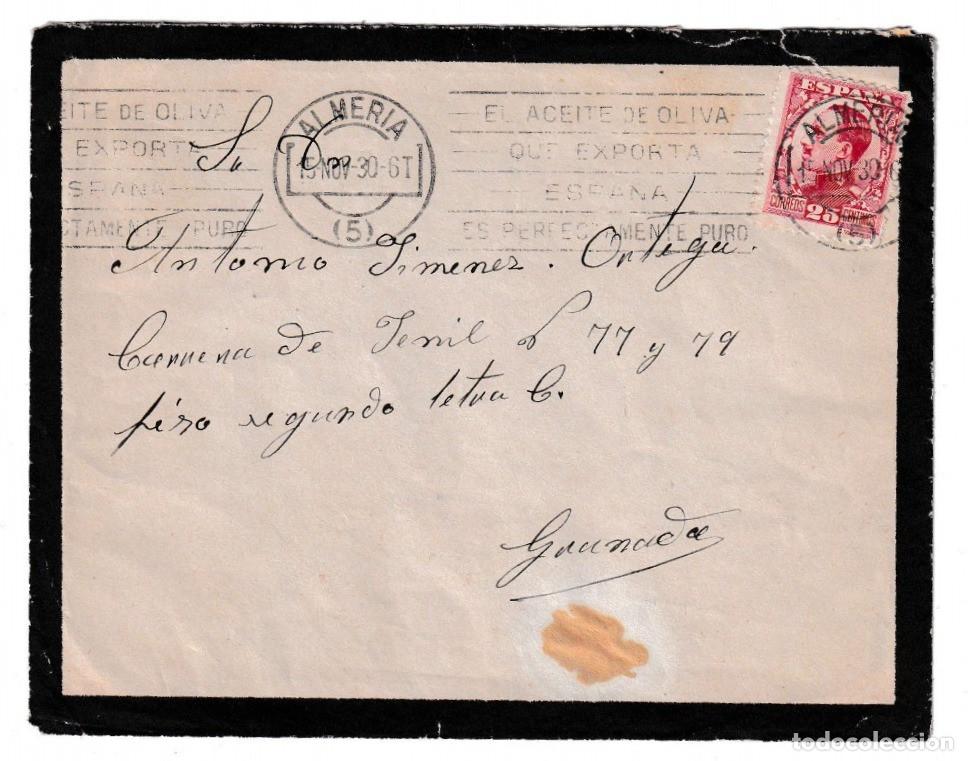 EITE DE OLIVA
EXPORTA
ESPAÑA
CTAMENTE PURO
ALMERIA
15 NOV 30-6T
(5)
EL ACEITE DE OLIVA
QUE EXPORTA
ESPAÑA
ES PERFECTAMENTE PURO
ESPAÑA
CORREOS 25 CENTIMOS
ALMERIA
15 NOV 30-6
(5)
Sr Don
Antonio Jimenez. Ortega
Carrera de Jenil nº 77 y 79
piso segundo letra C.
Granada
todocoleccion